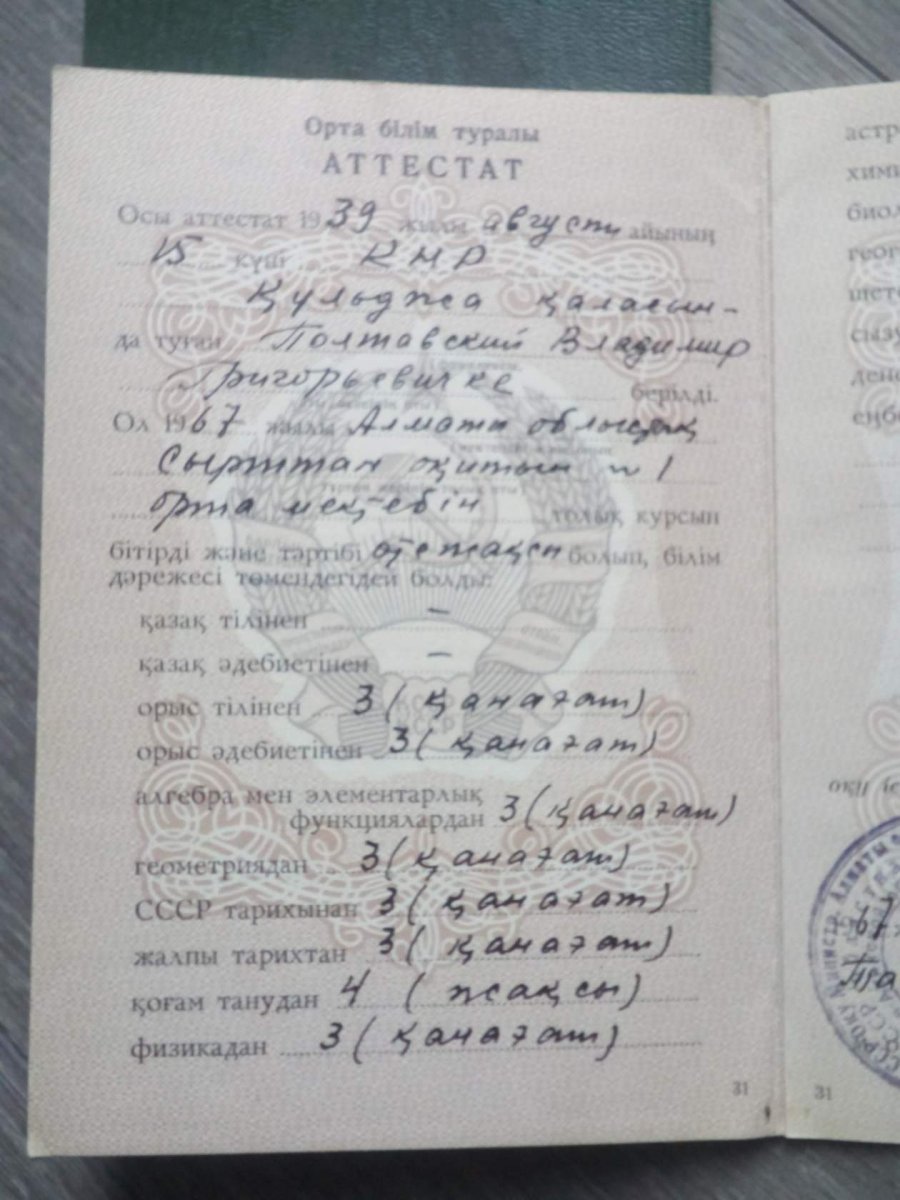 Орта білім туралы
АТТЕСТАТ
Осы аттестат 1939 жылы августы айының
15 күні КНР
Құльджа қаласын-
да туған Полтавский Владимир
Григорьевичке берілді.
Ол 1967 жылы Алматы облыстық
сырттан оқитын №1
орта мектебін толық курсын
бітірді және тәртібі өте жақсы болып, білім
дәрежесі төмендегідей болды:
қазақ тілінен –
қазақ әдебиетінен –
орыс тілінен 3 (қанағат)
орыс әдебиетінен 3 (қанағат)
алгебра мен элементарлық
функциялардан 3 (қанағат)
геометриядан 3 (қанағат)
СССР тарихынан 3 (қанағат)
жалпы тарихтан 3 (қанағат)
қоғам танудан 4 (жақсы)
физикадан 3 (қанағат)
31
астр
хими
биол
геог
шете
сызу
дене
еңбе
67
31